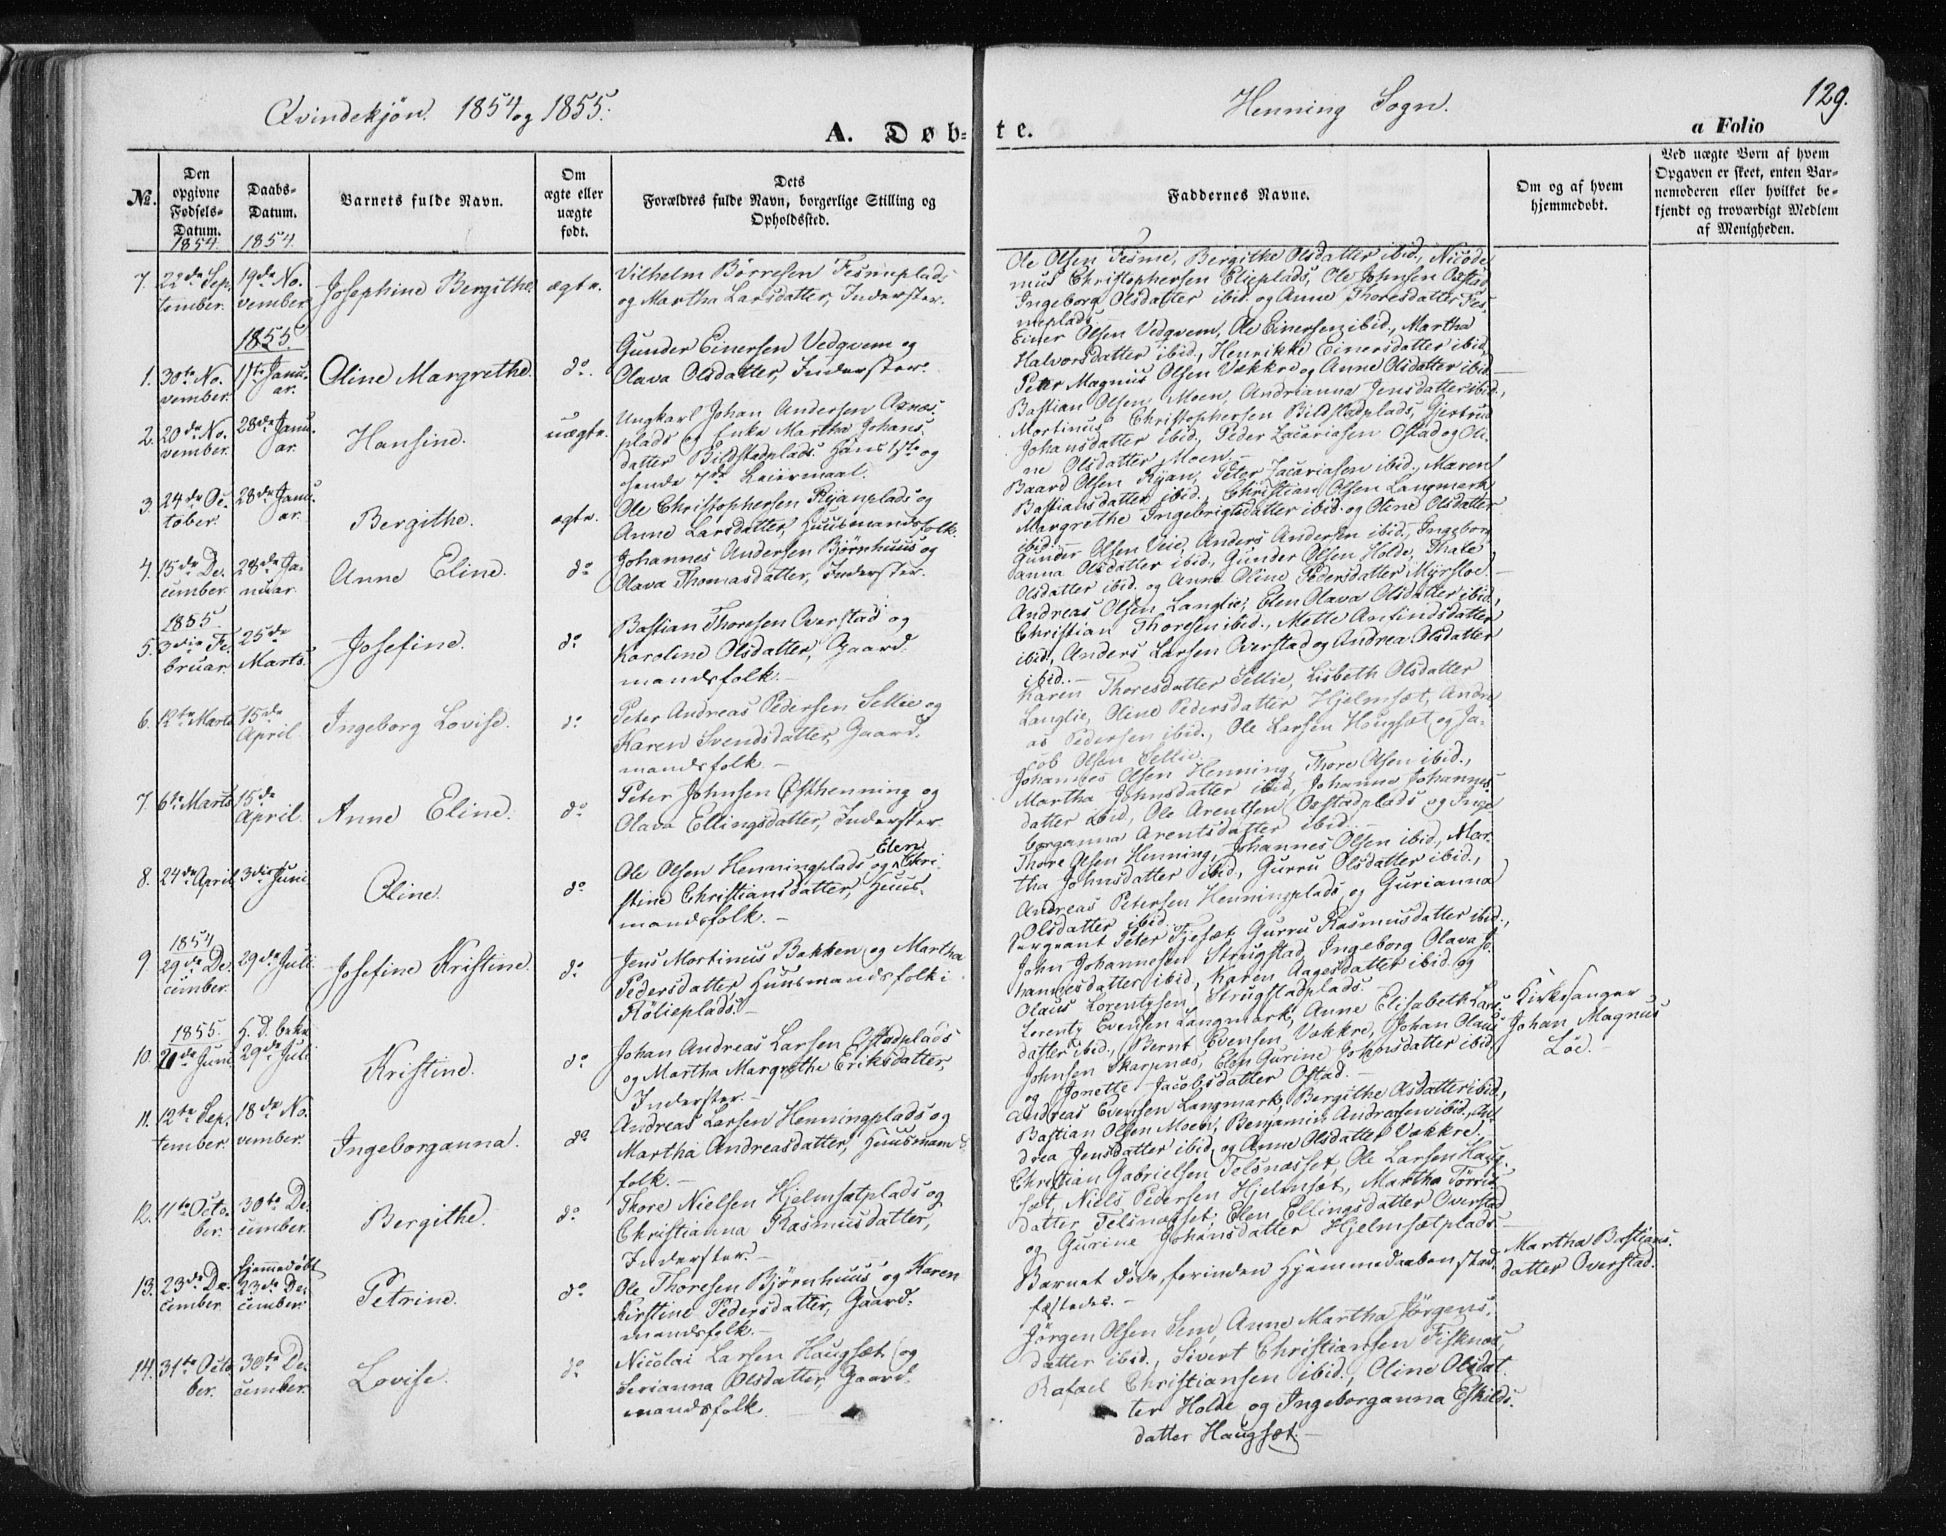 Qvindekjøn. 1854 og 1855.
Henning Sogn.
129.
A. Døb-
te.
a Folio
No.
Den opgivne Fødsels-Datum.
Daabs-Datum.
Barnets fulde Navn.
Om ægte eller uægte født.
Dets Forældres fulde Navn, borgerlige Stilling og Opholdssted.
Faddernes Navne.
Om og af hvem hjemmedøbt.
Ved uægte Børn af hvem Opgaven er skeet, enten Barnemoderen eller hvilket bekjendt og troværdigt Medlem af Menigheden.
1854. 1854.
7. 22de September. 19de November. Josephine Bergithe. ægte.
Vilhelm Børresen Fesmeplads
og Martha Larsdatter, Inderster.
Ole Olsen Fesme, Bergithe Olsdatter ibid, Nicode-
mus Christophersen Elieplads, Ole Johnsen Østad,
Ingeborg Olsdatter ibid. og Anne Thoresdatter Fes-
meplads.
1855
1. 30te November. 17te Januar. Oline Margrethe. do.
Gunder Einersen Vedqvem og
Olava Olsdatter, Inderster.
Einer Olsen Vedqvem, Ole Einersen ibid., Martha
Halvorsdatter ibid., Henrikke Einersdatter ibid,
Peter Magnus Olsen Vækkre og Anne Olsdatter ibid.
2. 20de November. 28de Januar. Hansine. uægte.
Ungkarl Johan Andersen Aanæs-
plads og Enke Martha Johans-
datter Bildstadplads. Hans 1ste og
hendes Leiermaal.
Bastian Olsen Moen, Andrianna Jensdatter ibid.,
Mortinus Christophersen Bildstadplads, Gjertrud
Johansdatter ibid., Peder Zacariasen Østad og Oli-
ne Olsdatter Moen.
3. 24de October. 28de Januar. Bergithe. ægte.
Ole Christophersen Ryanplads og
Anne Larsdatter, Huusmandsfolk.
Baard Olsen Ryan, Peter Zacariasen ibid., Maren
Bastiansdatter ibid., Christian Olsen Langmark
Margrethe Ingebrigtsdatter ibid. og Oline Olsdatter
ibid.
4. 15de December. 28de Januar. Anne Eline. do
Johannes Andersen Bjørnhuus og
Olava Thomasdatter, Inderster.
Gunder Olsen Veie, Anders Andersen ibid., Ingebor-
anna Olsdatter ibid., Gunder Olsen Holde, Thale
Olsdatter ibid. og Anne Oline Pedersdatter Myrsloe.
1855.
5. 3die Februar. 25de Marts. Josefine. do
Bastian Thoresen Overstad og
Karoline Olsdatter, Gaard-
mandsfolk.
Andreas Olsen Langlie, Elen Olava Olsdatter ibid.,
Christian Thoresen ibid., Mette Antinsdatter
ibid., Anders Larsen Overstad og Andrea Olsdatter
ibid.
6. 12te Marts 15de April Ingeborg Lovise. do
Peter Andreas Pedersen Sellie og
Karen Svendsdatter, Gaard-
mandsfolk.
Karen Thoresdatter Sellie, Lisbeth Olsdatter
Langlie, Oline Pedersdatter Hjelmsæt, Andre-
as Pedersen ibid., Ole Larsen Haugsæt og Ja-
cob Olsen Sellie.
7. 6te Marts 15de April. Anne Eline. do
Peter Johnsen Østhenning og
Olava Ellingsdatter, Inderster
Johannes Olsen Henning, Thore Olsen ibid.,
Martha Johnsdatter ibid, Johanna Johannes-
datter ibid, Ole Arentsen Østadplads og Inge-
borganna Arentsdatter ibid.
8. 24de April 3die Juni Oline. do
Ole Olsen Henningplads og Elen Chri-
stine Christiansdatter, Huus-
mandsfolk.
Thore Olsen Henning, Johannes Olsen ibid, Mar-
tha Johnsdatter ibid, Gurru Olsdatter ibid.,
Andreas Petersen Henningplads og Gurianna
Olsdatter ibid.
1854
9 29de December. 29de Juli Josefine Kristine. do
Jens Mortinus Bakken og Martha
Pedersdatter, Huusmandsfolk i
Rølieplads.
Sergeant Peter Fiesæt, Gurru Rasmusdatter ibid.,
John Johannesen Strugstad, Ingeborg Olava Jo-
hannesdatter ibid, Karen Aagesdatter ibid. og
Olaus Lorentzsen Strugstadplads.
1855. H. D. bekr.
10. 21de Juni 29de Juli Kristine. do
Johan Andreas Larsen Østadplads
og Martha Margrethe Eriksdatter,
Inderster.
Lorentz Evensen Langmark, Anne Elisabeth Lars-
datter ibid., Bernt Evensen Vækkre, Johan Olaus
Johnsen Skarpnæs, Elen Gurine Johnsdatter ibid.
og Jonette Jacobsdatter Østad.
Kirkesanger
Johan Magnus
Løe.
11. 12te September. 18de November. Ingeborganna. do
Andreas Larsen Henningplads og
Martha Andreasdatter, Huusmands-
folk.
Andreas Evensen Langmark, Bergithe Olsdatter ibid,
Bastian Olsen Moen, Benjamin Andreassen ibid., An-
drea Jensdatter ibid. og Anne Olsdatter Vækkre.
12. 11te October. 30te December. Bergithe. do
Thore Nielsen Hjelmsætplads og
Christianna Rasmusdatter,
Inderster.
Christian Gabrielsen Telsnæsset, Ole Larsen Haug-
sæt, Niels Pedersen Hjelmsæt, Martha Tørris-
datter Telsnæsset, Elen Ellingsdatter Overstad
og Gurine Johansdatter Hjelmsætplads.
Hjemmedøbt
13. 23de December. 23de December. Petrine. do
Ole Thoresen Bjørnhuus og Karen
Kirstine Pedersdatter, Gaard-
mandsfolk.
Barnet døde, forinden Hjemmedaaben stad-
fæstedes.
Martha Bastians-
datter Overstad.
14. 31te October. 30te December. Lovise. do
Nicolai Larsen Haugsæt og
Serianna Olsdatter, Gaard-
mandsfolk.
Jørgen Olsen Sende, Anne Martha Jørgens-
datter ibid., Sivert Christiansen Fisknæs,
Rafael Christiansen ibid., Oline Olsdat-
ter Holde og Ingeborganna Eskilds-
datter Haugsæt.